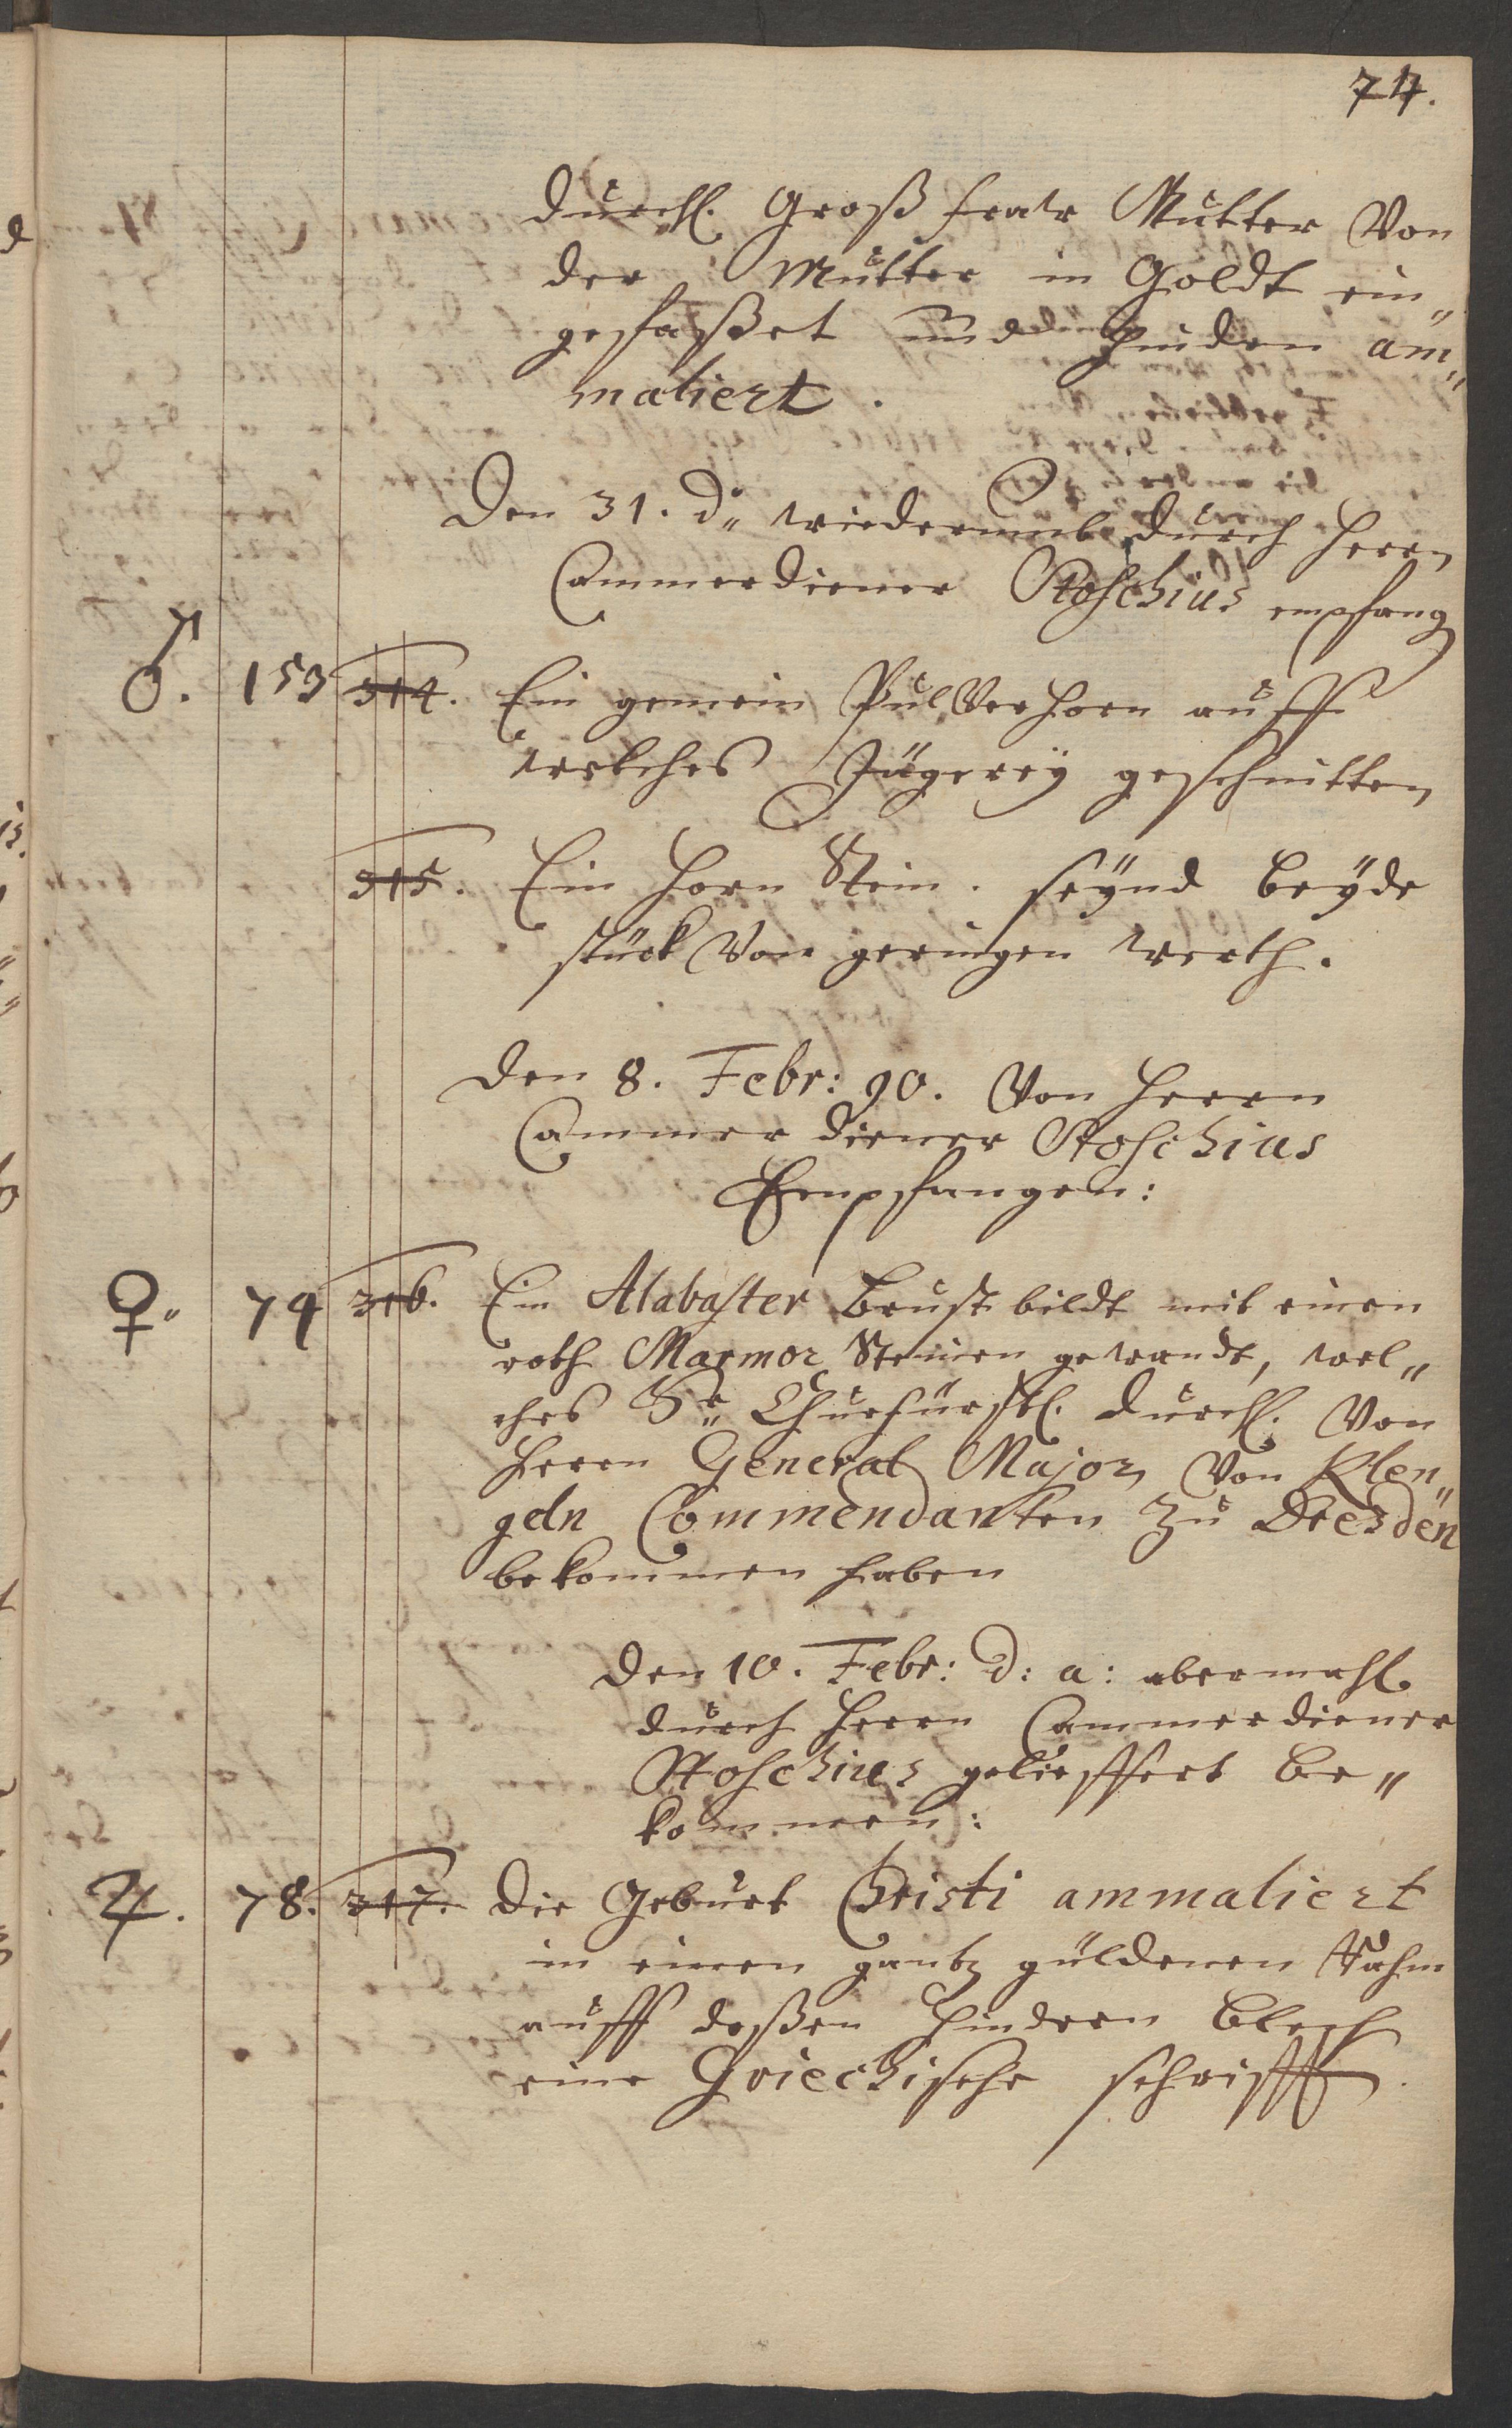 74.
Durchl. Groß fraw Mutter Von
der Mutter in Goldt ein„
gefaßet und hinden am„
maliert.
Den 31. d„ wiederumb durch Herrn
Cammerdiener Stoschius empfang
♂. 153 314. Ein gemein PulVerhorn auff
welches Jägereÿ geschnitten
315. Ein Horn Stein. seÿnd beÿde
stück Von geringen werth.
Den 8. Febr: 90. Von Herrn
Cammer diener Stoschius
Empfangen:
♀„ 74 316. Ein Alabaster Brustbildt mit einen
roth Marmor Steinen gewandt, wel„
ches Sr. Churfürstl. Durchl. Von
Herrn General Major Von Klen„
geln Commendanten Zu Dresden
bekommen haben
Den 10. Febr: d: a: abermahl
durch Herrn Cammerdiener
Stoschius gelieffert be„
kommen:
♃. 78. 317. Die Geburt Christi ammaliert
in einen gantz güldenen Rahm
auff deßen hindern Blech
eine Griechische schrifft.